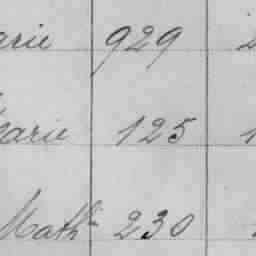 arie 929
Marie 125
Math 230